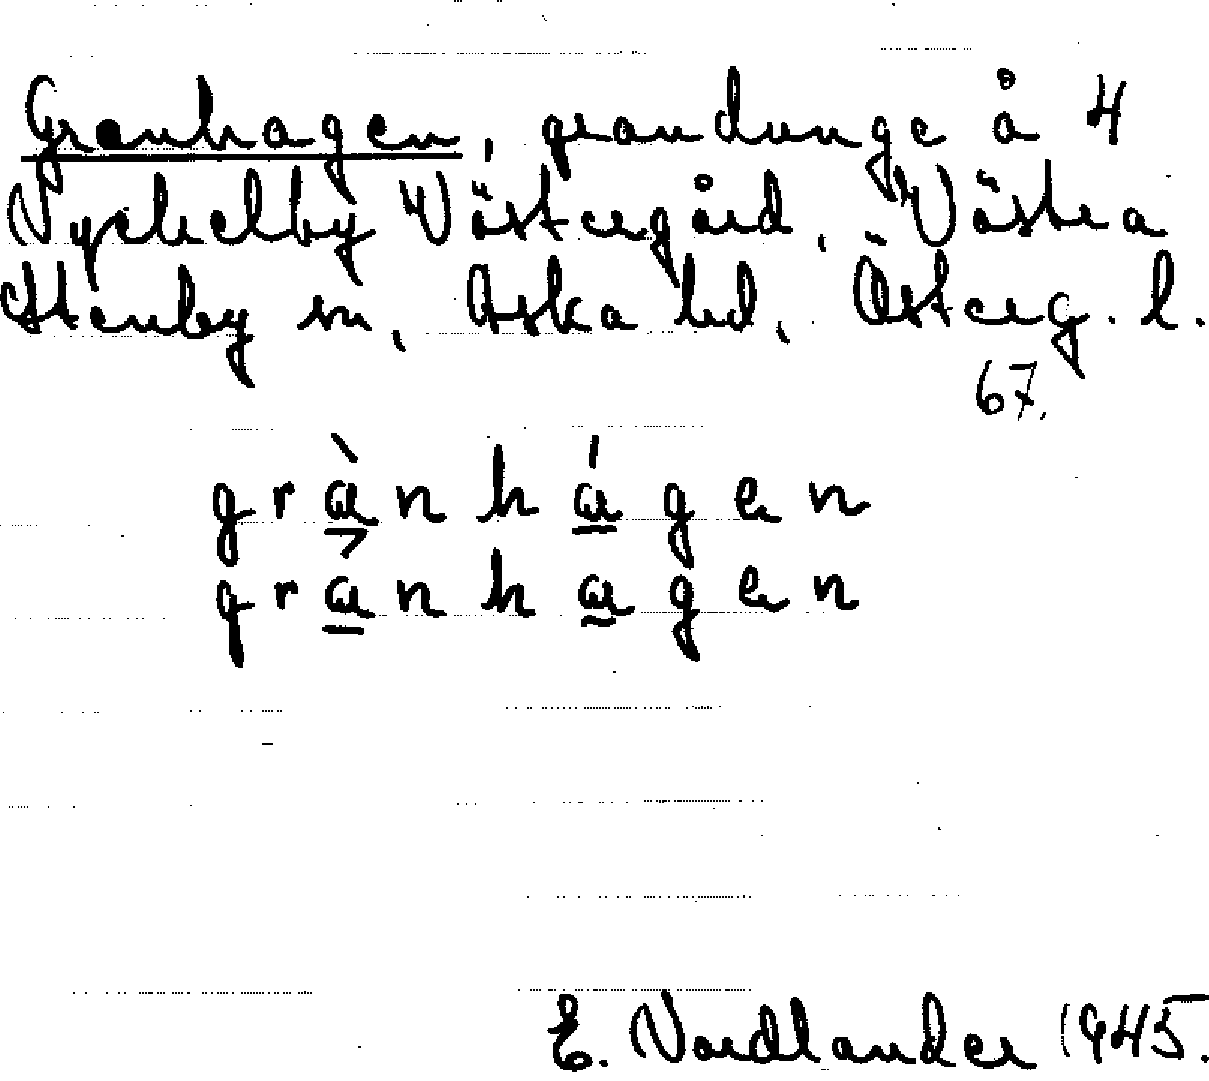 Granhagen, grandunge å 4
Nyckelby Västergård, Västra
Stenby sn, Aska hd, Österg. l.
67.
grànhágen
granhagen
E. Nordlander 1945.